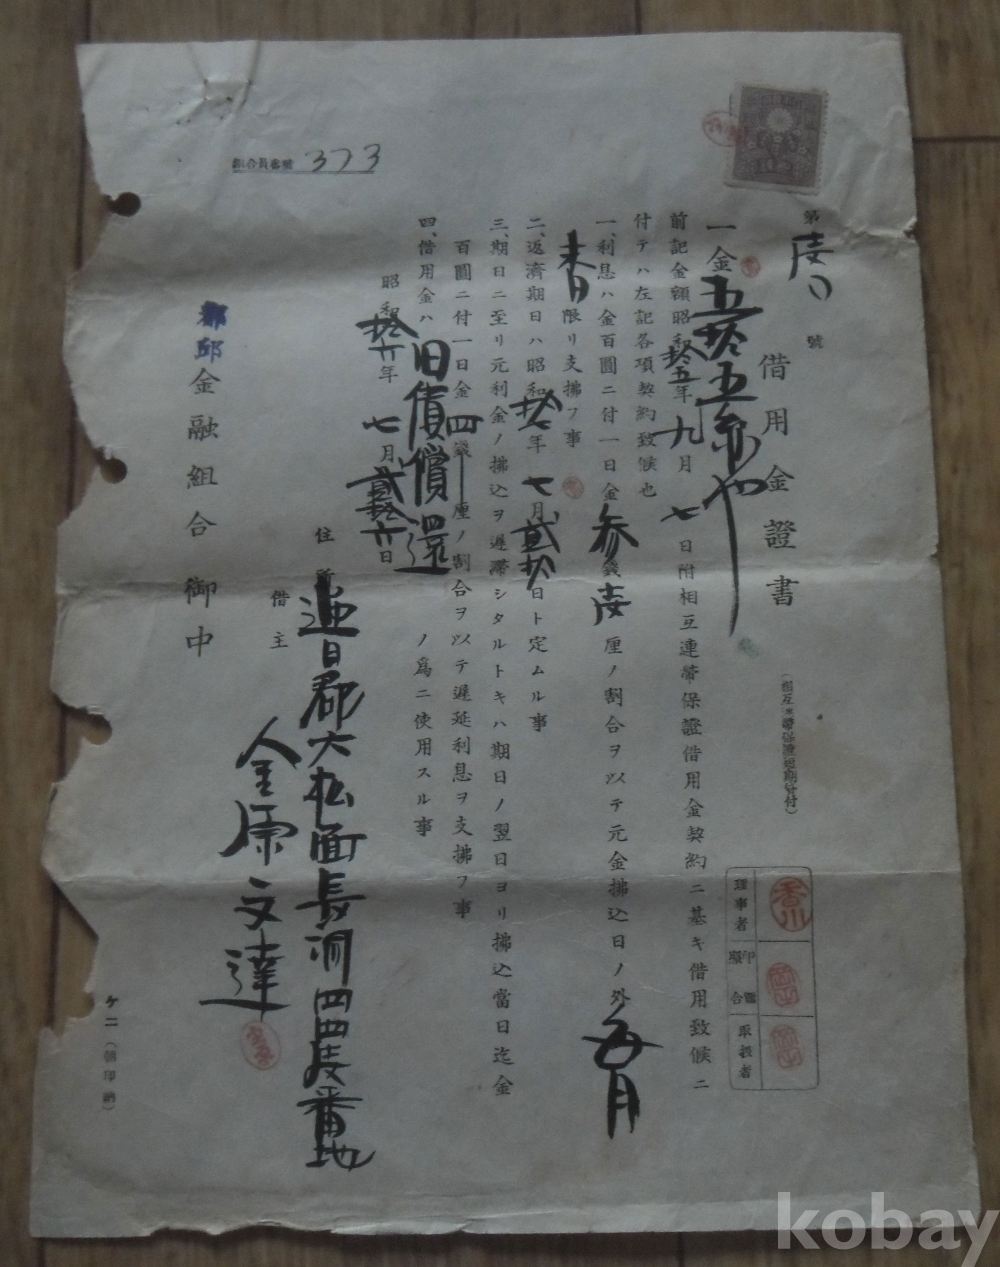 組合員番號 373
第 号 號
借用金證書
(相互連帶保證短期貸付)
一金五拾五円也
前記金額昭和拾五年九月七日附相互連帶保證借用金契約ニ基キ借用致候ニ
付テハ左記各項契約致候也
一、利息ハ金百圓ニ付一日金参錢 厘ノ割合ヲ以テ元金拂込日ノ外每月
末日限リ支拂フ事
二、返濟期日ハ昭和拾 年七月貳拾日ト定ムル事
三、期日ニ至リ元利金ノ拂込ヲ遲滯シタルトキハ期日ノ翌日ヨリ拂込當日迄金
百圓ニ付一日金四錢 厘ノ割合ヲ以テ遲延利息ヲ支拂フ事
四、借用金ハ旧債償還ノ爲ニ使用スル事
昭和拾六年七月貳拾 日
住所 達日郡大松面長洞四四 番地
借主 金原文達
金融組合 御中
理事者 香川
印鑑照合
承扱者
ケ二(朝印納)
kobay